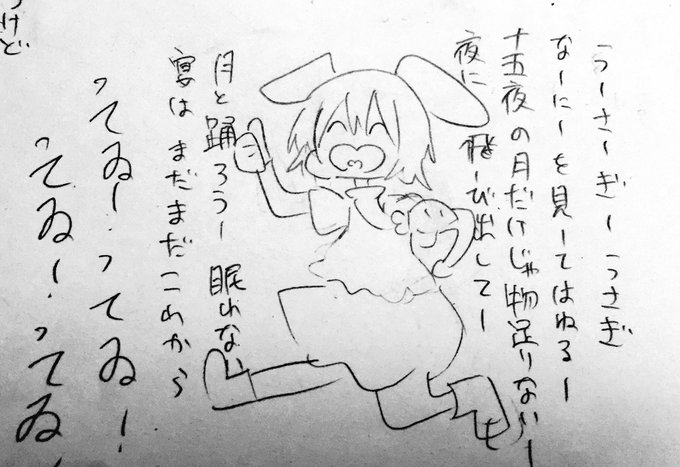 うーさーぎーうさぎ
なーにーを見ーてはねるー
十五夜の月だけじゃ物足りないー
夜に 飛ーび出してー
月と踊ろうー 眠れない
宴は まだまだこれから
ってゐー！ってゐ！
ってゐー！ってゐ！
うけど